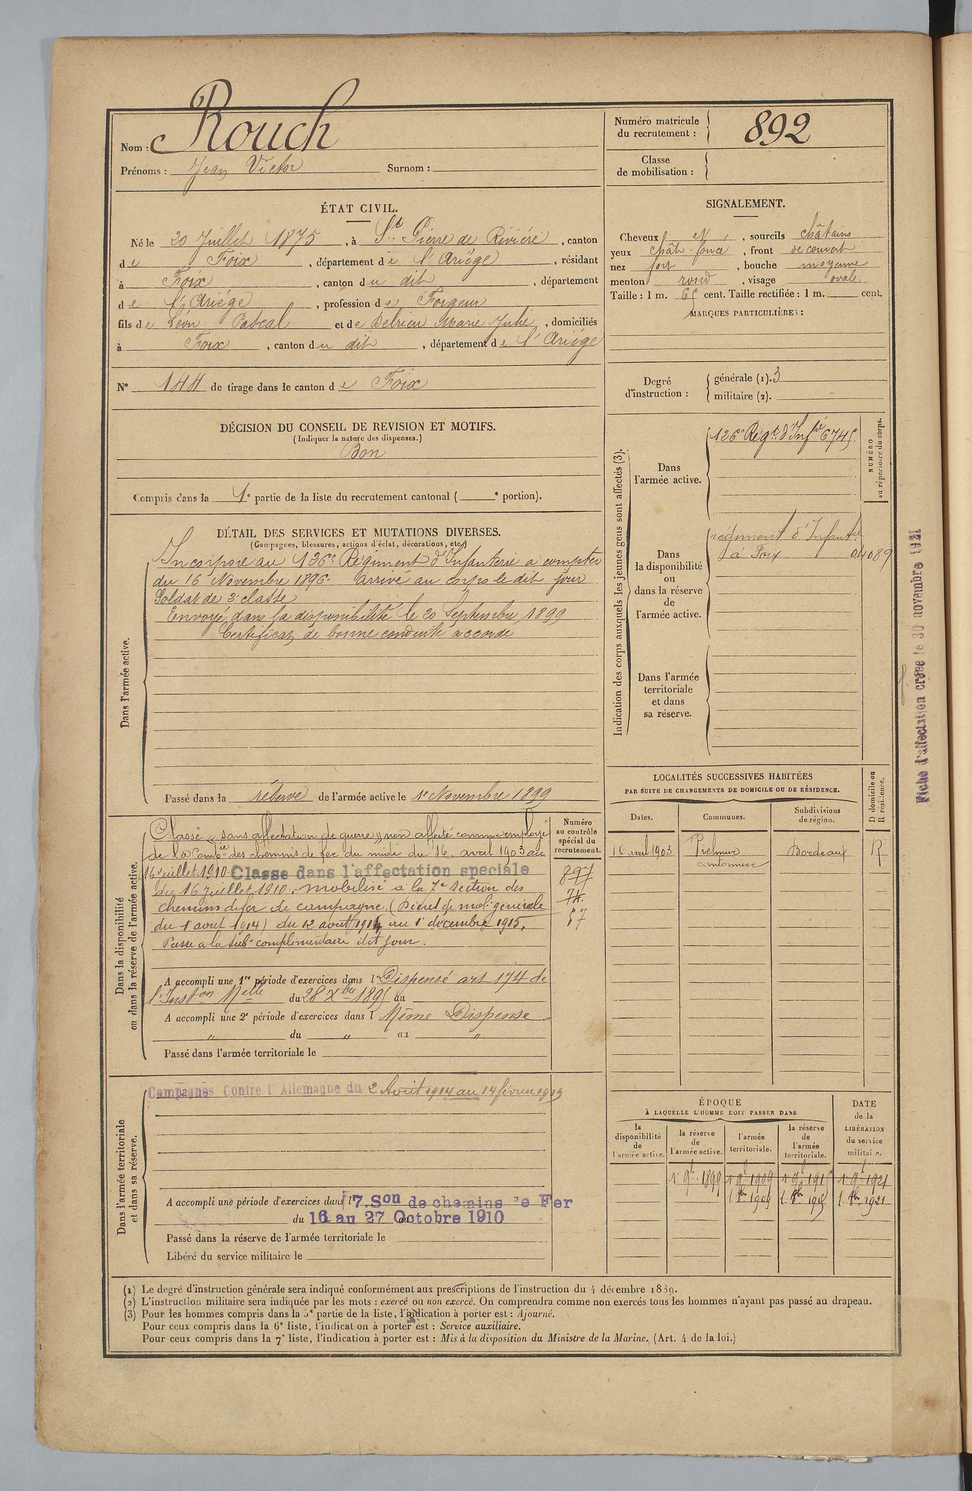 Nom : Rouch
Prénoms : Jean Victor Surnom :
Numéro matricule
du recrutement : 892
Classe
de mobilisation :
ÉTAT CIVIL.
Né le 20 Juillet 1875, à St Pierre de Rivière, canton
de Foix, département de l'Ariège, résidant
à Foix, canton du dit, département
de l'Ariège, profession de Forgeur
fils de Léon Pascal et de Delrieu Marie Julie, domiciliés
à Foix, canton du dit, département de l'Ariège
N° 144 de tirage dans le canton de Foix
DÉCISION DU CONSEIL DE REVISION ET MOTIFS.
(Indiquer la nature des dispenses.)
Bon
Compris dans la 1e partie de la liste du recrutement cantonal ( e portion).
SIGNALEMENT.
Cheveux N, sourcils châtains
yeux chât. foncé, front découvert
nez fort, bouche moyenne
menton rond, visage ovale
Taille : 1 m. 65 cent. Taille rectifiée : 1 m. cent.
MARQUES PARTICULIÈRES :
Degré
d'instruction :
générale (1). 3
militaire (2).
DÉTAIL DES SERVICES ET MUTATIONS DIVERSES.
(Campagnes, blessures, actions d'éclat, décorations, etc.)
Dans l'armée active.
Incorporé au 126e Régiment d'Infanterie à compter
du 16 Novembre 1896. Arrivé au corps le dit jour
Soldat de 2e classe
Envoyé dans la disponibilité le 20 Septembre 1899
Certificat de bonne conduite accordé
Passé dans la réserve de l'armée active le 1er Novembre 1899
Indication des corps auxquels les jeunes gens sont affectés (3).
NUMÉRO
au répertoire du corps.
Dans
l'armée active.
126e Régt d'Infie 6745
Dans
la disponibilité
ou
dans la réserve
de
l'armée active.
régiment d'Infanterie
à Foix 04089
Dans l'armée
territoriale
et dans
sa réserve.
Dans la disponibilité
ou dans la réserve de l'armée active.
Numéro
au contrôle
spécial du
recrutement.
Classé "sans affectation de guerre" non affecté comme employé
de la Compie des chemins de fer du midi du 16 avril 1903 au
16 juillet 1910. Classé dans l'affectation spéciale
du 16 juillet 1910. mobilisé à la 7e Section des
chemins de fer de campagne. (Décret de mob. générale
du 1 aout 1914) du 12 aout 1914 au 1er décembre 1915.
Passé à la sub. complémentaire dit jour.
897
74
57
A accompli une 1re période d'exercices dans l Dispensé art 174 de
l'Inston Melle du 28 Xbre 1895 au
A accompli une 2e période d'exercices dans l Même Dispense
" du " au "
Passé dans l'armée territoriale le
LOCALITÉS SUCCESSIVES HABITÉES
PAR SUITE DE CHANGEMENTS DE DOMICILE OU DE RÉSIDENCE.
Dates. Communes. Subdivisions
de région. D domicile ou
R résidence.
16 avril 1903 cantonnier Bordeaux R
Dans l'armée territoriale
et dans sa réserve.
Campagnes Contre l'Allemagne du 2 Août 1914 au 14 février 1919
A accompli une période d'exercices dans l 7 Son de chemins de Fer
du 16 au 27 Octobre 1910
Passé dans la réserve de l'armée territoriale le
Libéré du service militaire le
ÉPOQUE
À LAQUELLE L'HOMME DOIT PASSER DANS
DATE
de la
LIBÉRATION
du service
militaire.
la
disponibilité
de
l'armée active.
la réserve
de
l'armée active.
l'armée
territoriale.
la réserve
de
l'armée
territoriale.
1 9bre 1899 1 9bre 1909 1 9bre 1915 1 9bre 1921
1 8bre 1909 1 8bre 1915 1 8bre 1921
Fiche d'affectation créée le 30 novembre 1921
(1) Le degré d'instruction générale sera indiqué conformément aux prescriptions de l'instruction du 4 décembre 1889.
(2) L'instruction militaire sera indiquée par les mots : exercé ou non exercé. On comprendra comme non exercés tous les hommes n'ayant pas passé au drapeau.
(3) Pour les hommes compris dans la 5e partie de la liste, l'indication à porter est : Ajourné.
Pour ceux compris dans la 6e liste, l'indication à porter est : Service auxiliaire.
Pour ceux compris dans la 7e liste, l'indication à porter est : Mis à la disposition du Ministre de la Marine. (Art. 4 de la loi.)